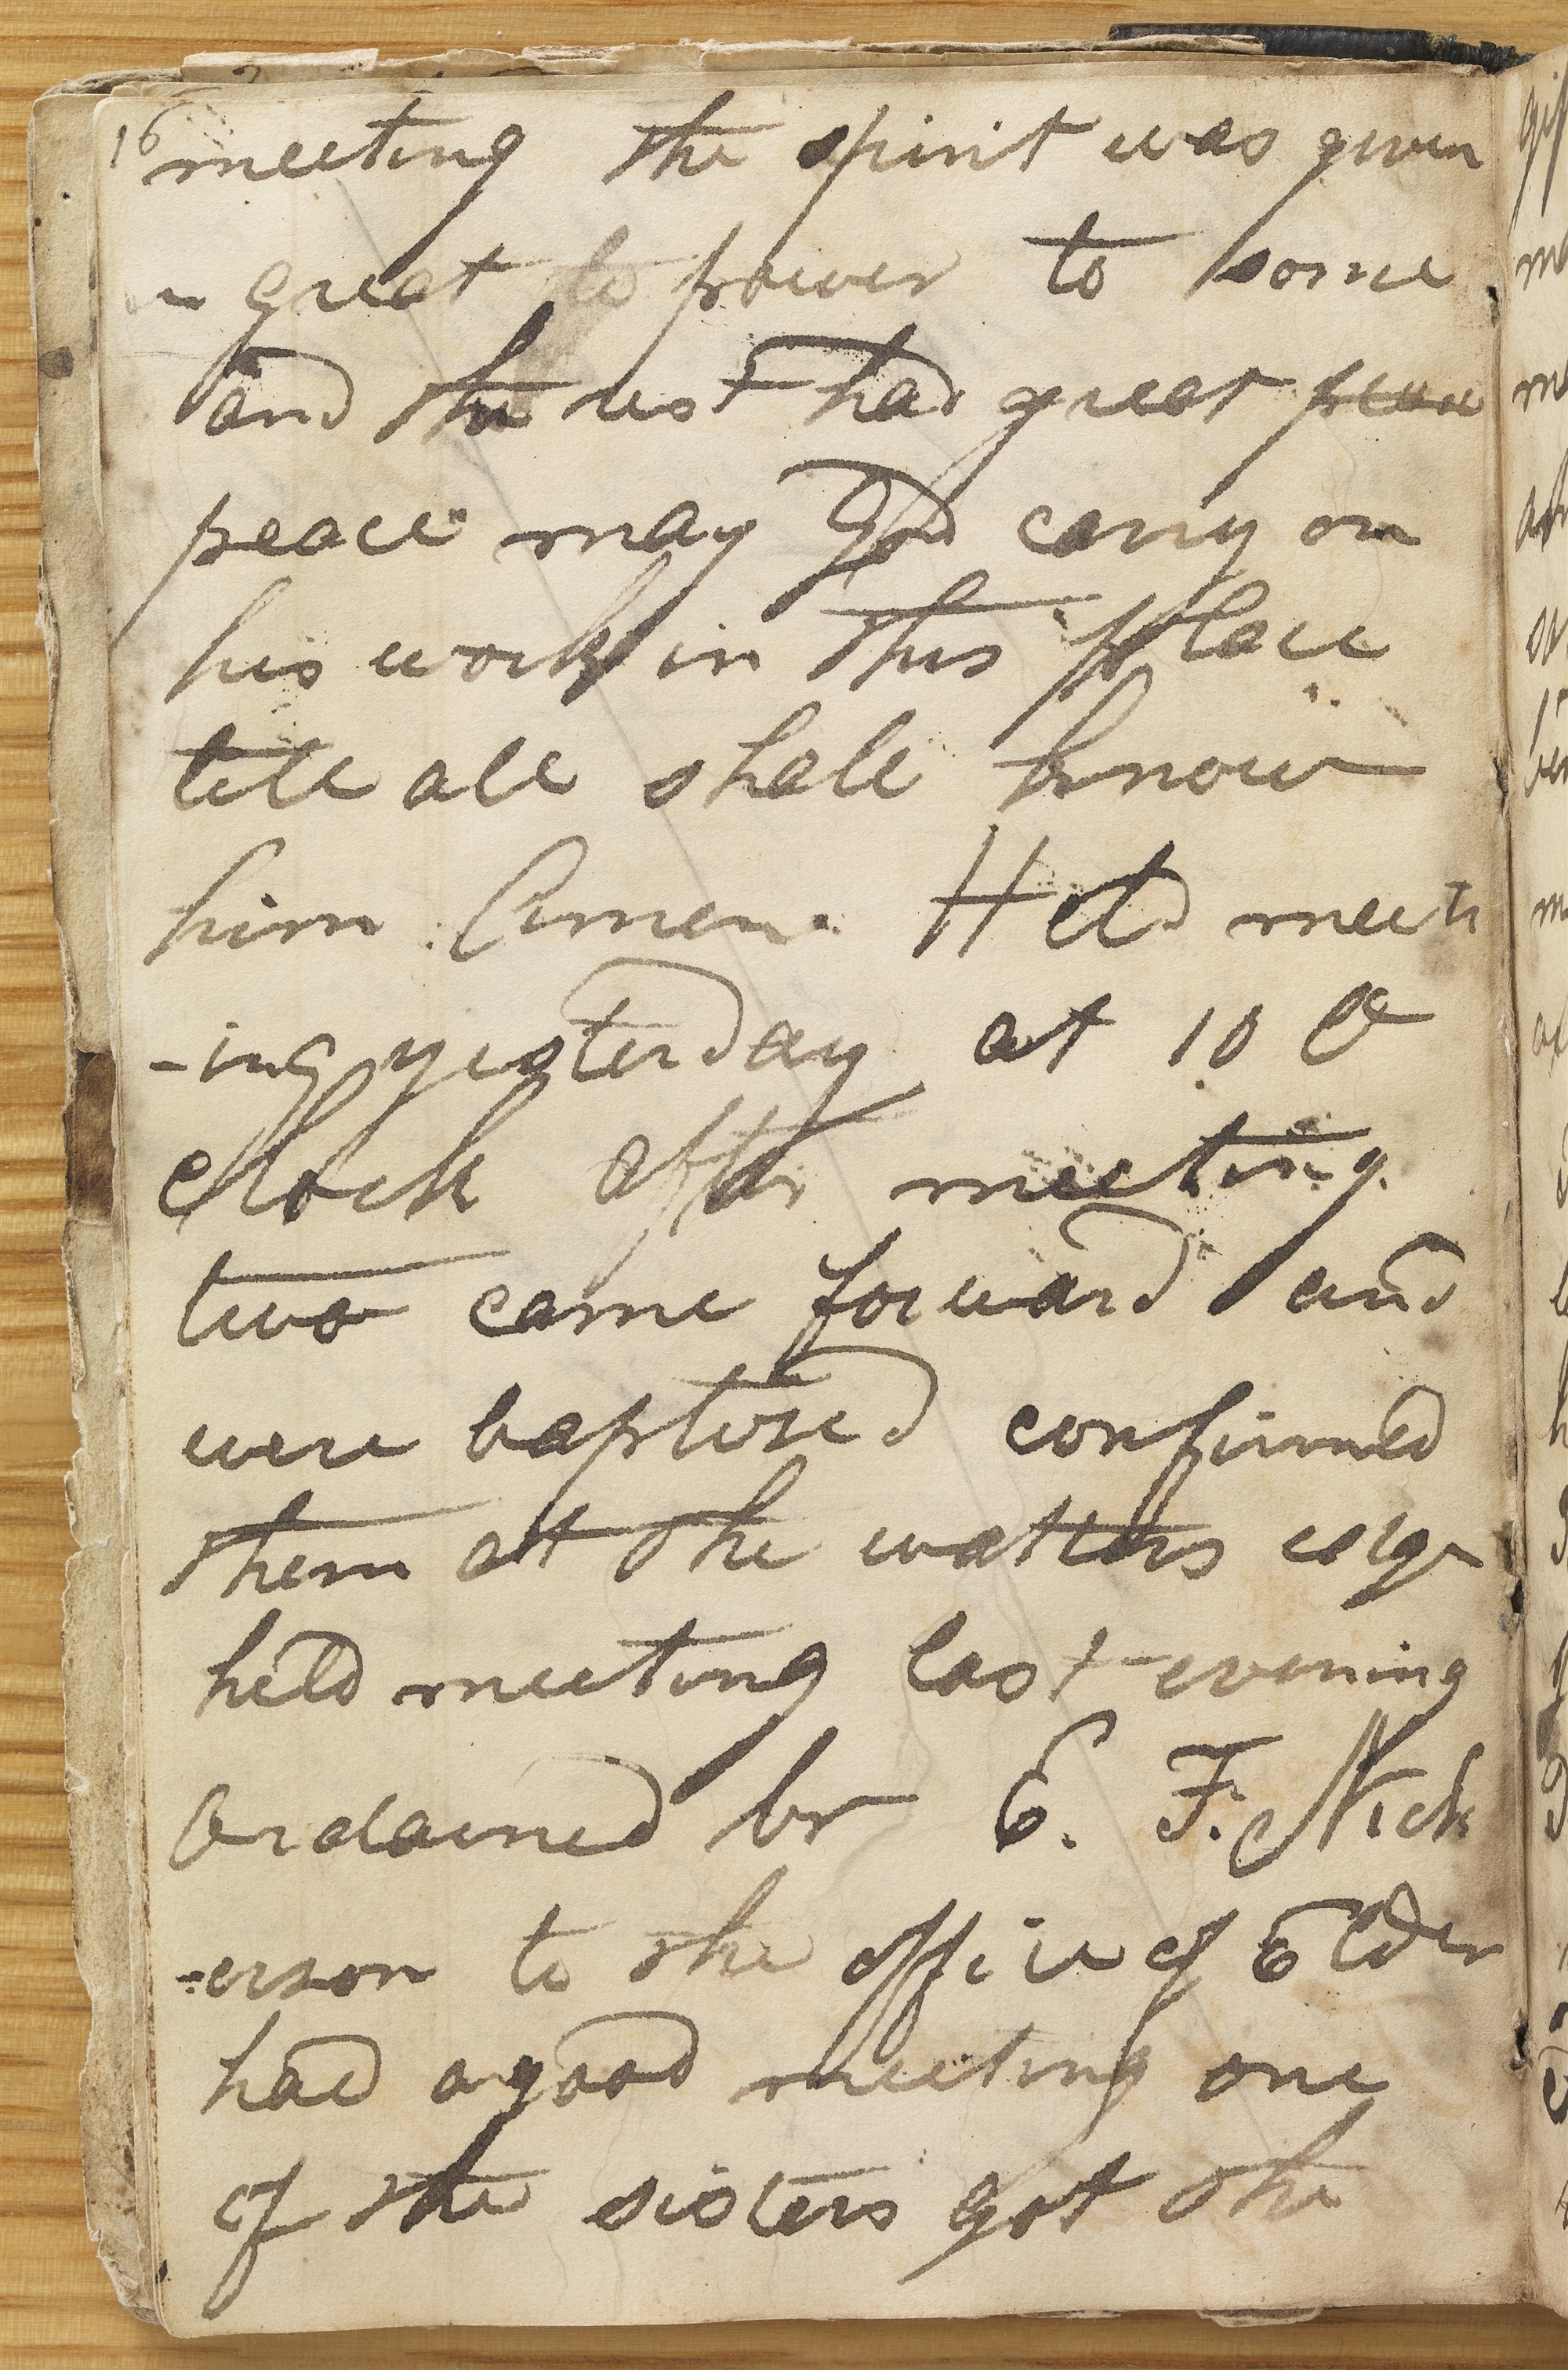 16 meeting the spirit was given
in great to power to some
and the rest had great peace
peace may God carry on
his work in this place
till all shall know
him Amen. Held meeti
-ing yesterday at 10 O
clock after meeting
two came forward and
were baptised confirmed
them at the watters edge
held meeting last evening
Ordained br E. F. Nick
-erson to the office of Elder
had a good meeting one
of the sisters got the